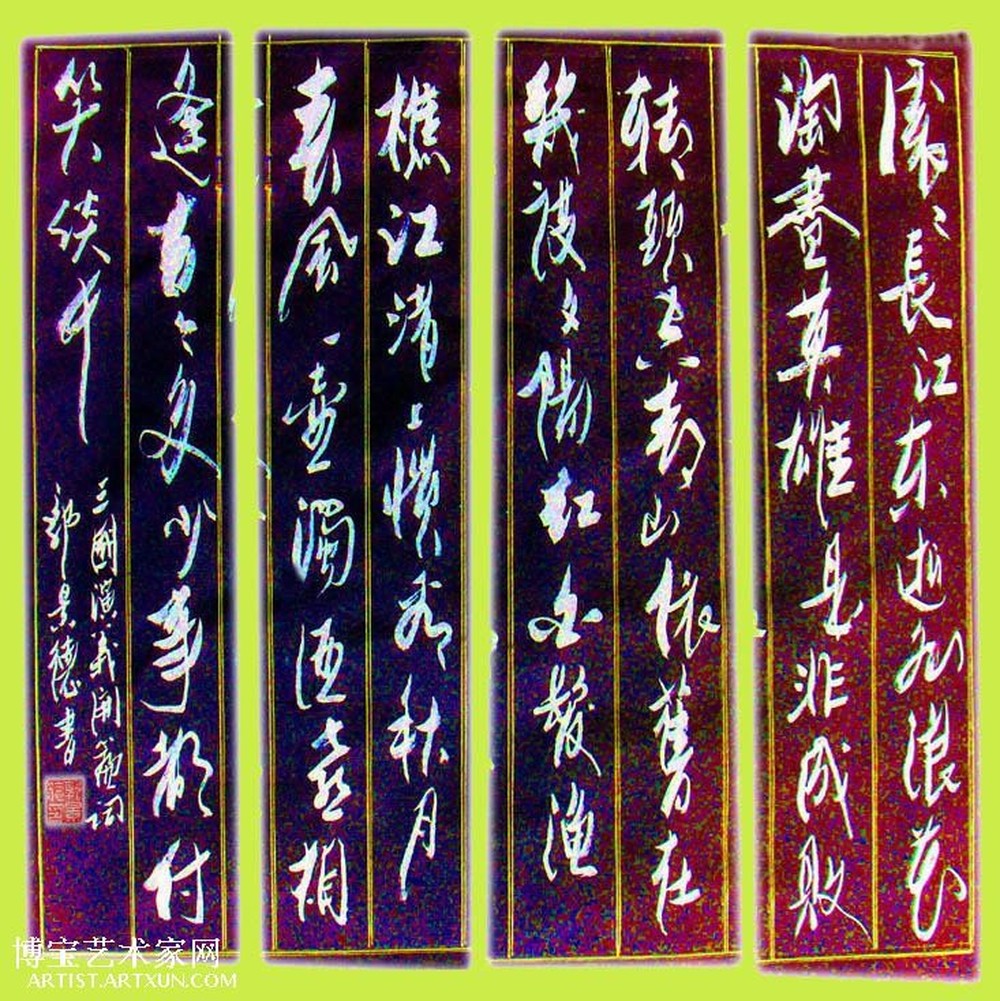 滚〻長江东逝水浪花
淘盡英雄是非成敗
转頭空青山依舊在
幾度夕陽红白髮渔
樵江渚上惯看秋月
春風一壺濁酒喜相
逢古今多少事都付
笑谈中
三國演義開篇词
景德書
博宝艺术家网
ARTIST.ARTXUN.COM